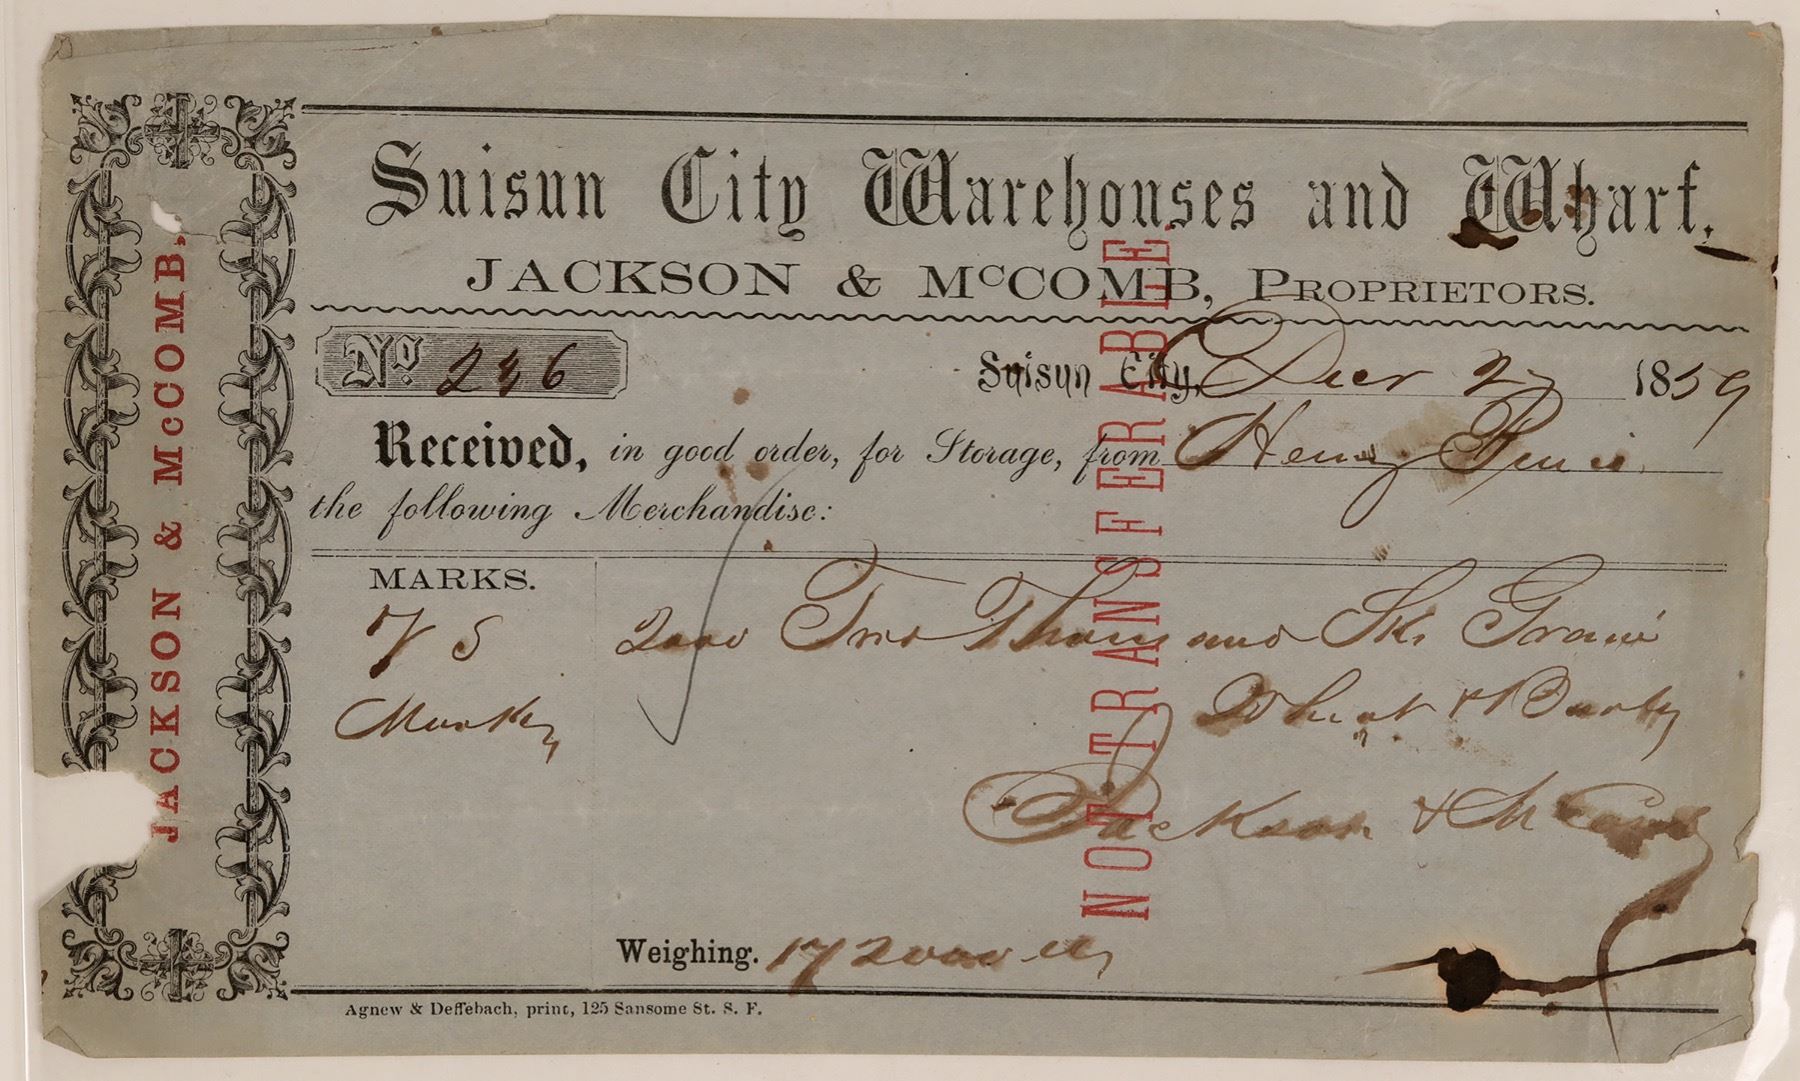 JACKSON & McCOMB.
Suisun City Warehouses and Wharf.
JACKSON & McCOMB, PROPRIETORS.
No. 236
Suisun City, Decr 27 1859
Received, in good order, for Storage, from Henry
the following Merchandise:
MARKS.
2000 Two Thousand Sks Grain
Wheat & Barley
Jackson & McComb
NOT TRANSFERABLE.
Weighing. 172000 lbs
Agnew & Deffebach, print, 125 Sansome St. S. F.